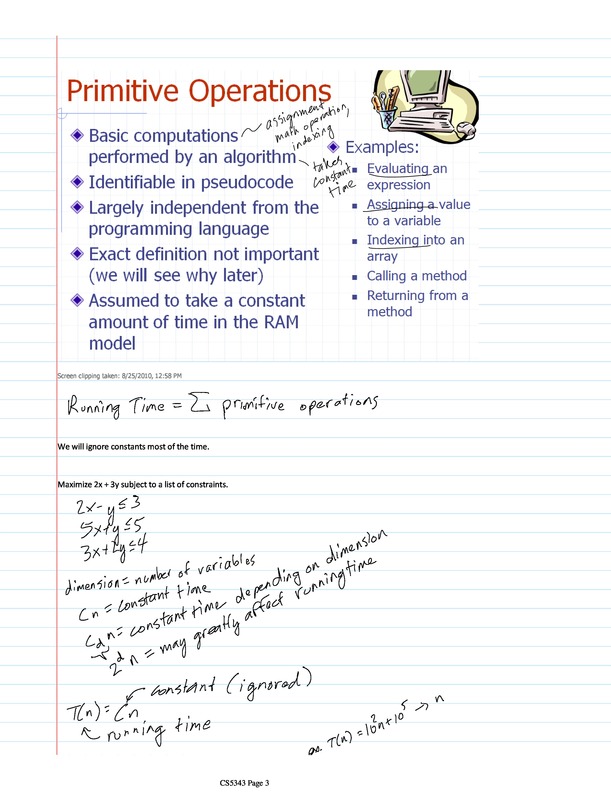 Primitive Operations
Basic computations
performed by an algorithm
Identifiable in pseudocode
Largely independent from the
programming language
Exact definition not important
(we will see why later)
Assumed to take a constant
amount of time in the RAM
model
assignment,
math operation,
indexing
takes
constant
time
Examples:
Evaluating an
expression
Assigning a value
to a variable
Indexing into an
array
Calling a method
Returning from a
method
Screen clipping taken: 8/25/2010, 12:58 PM
Running Time = ∑ primitive operations
We will ignore constants most of the time.
Maximize 2x + 3y subject to a list of constraints.
2x-y≤3
5x+y≤5
3x+2y≤4
dimension = number of variables
Cn = constant time
C_d n = constant time depending on dimension
2^d n = may greatly affect running time
constant (ignored)
T(n) = Cn
running time
T(n) = 10^2n+10^5 → n
CS5343 Page 3